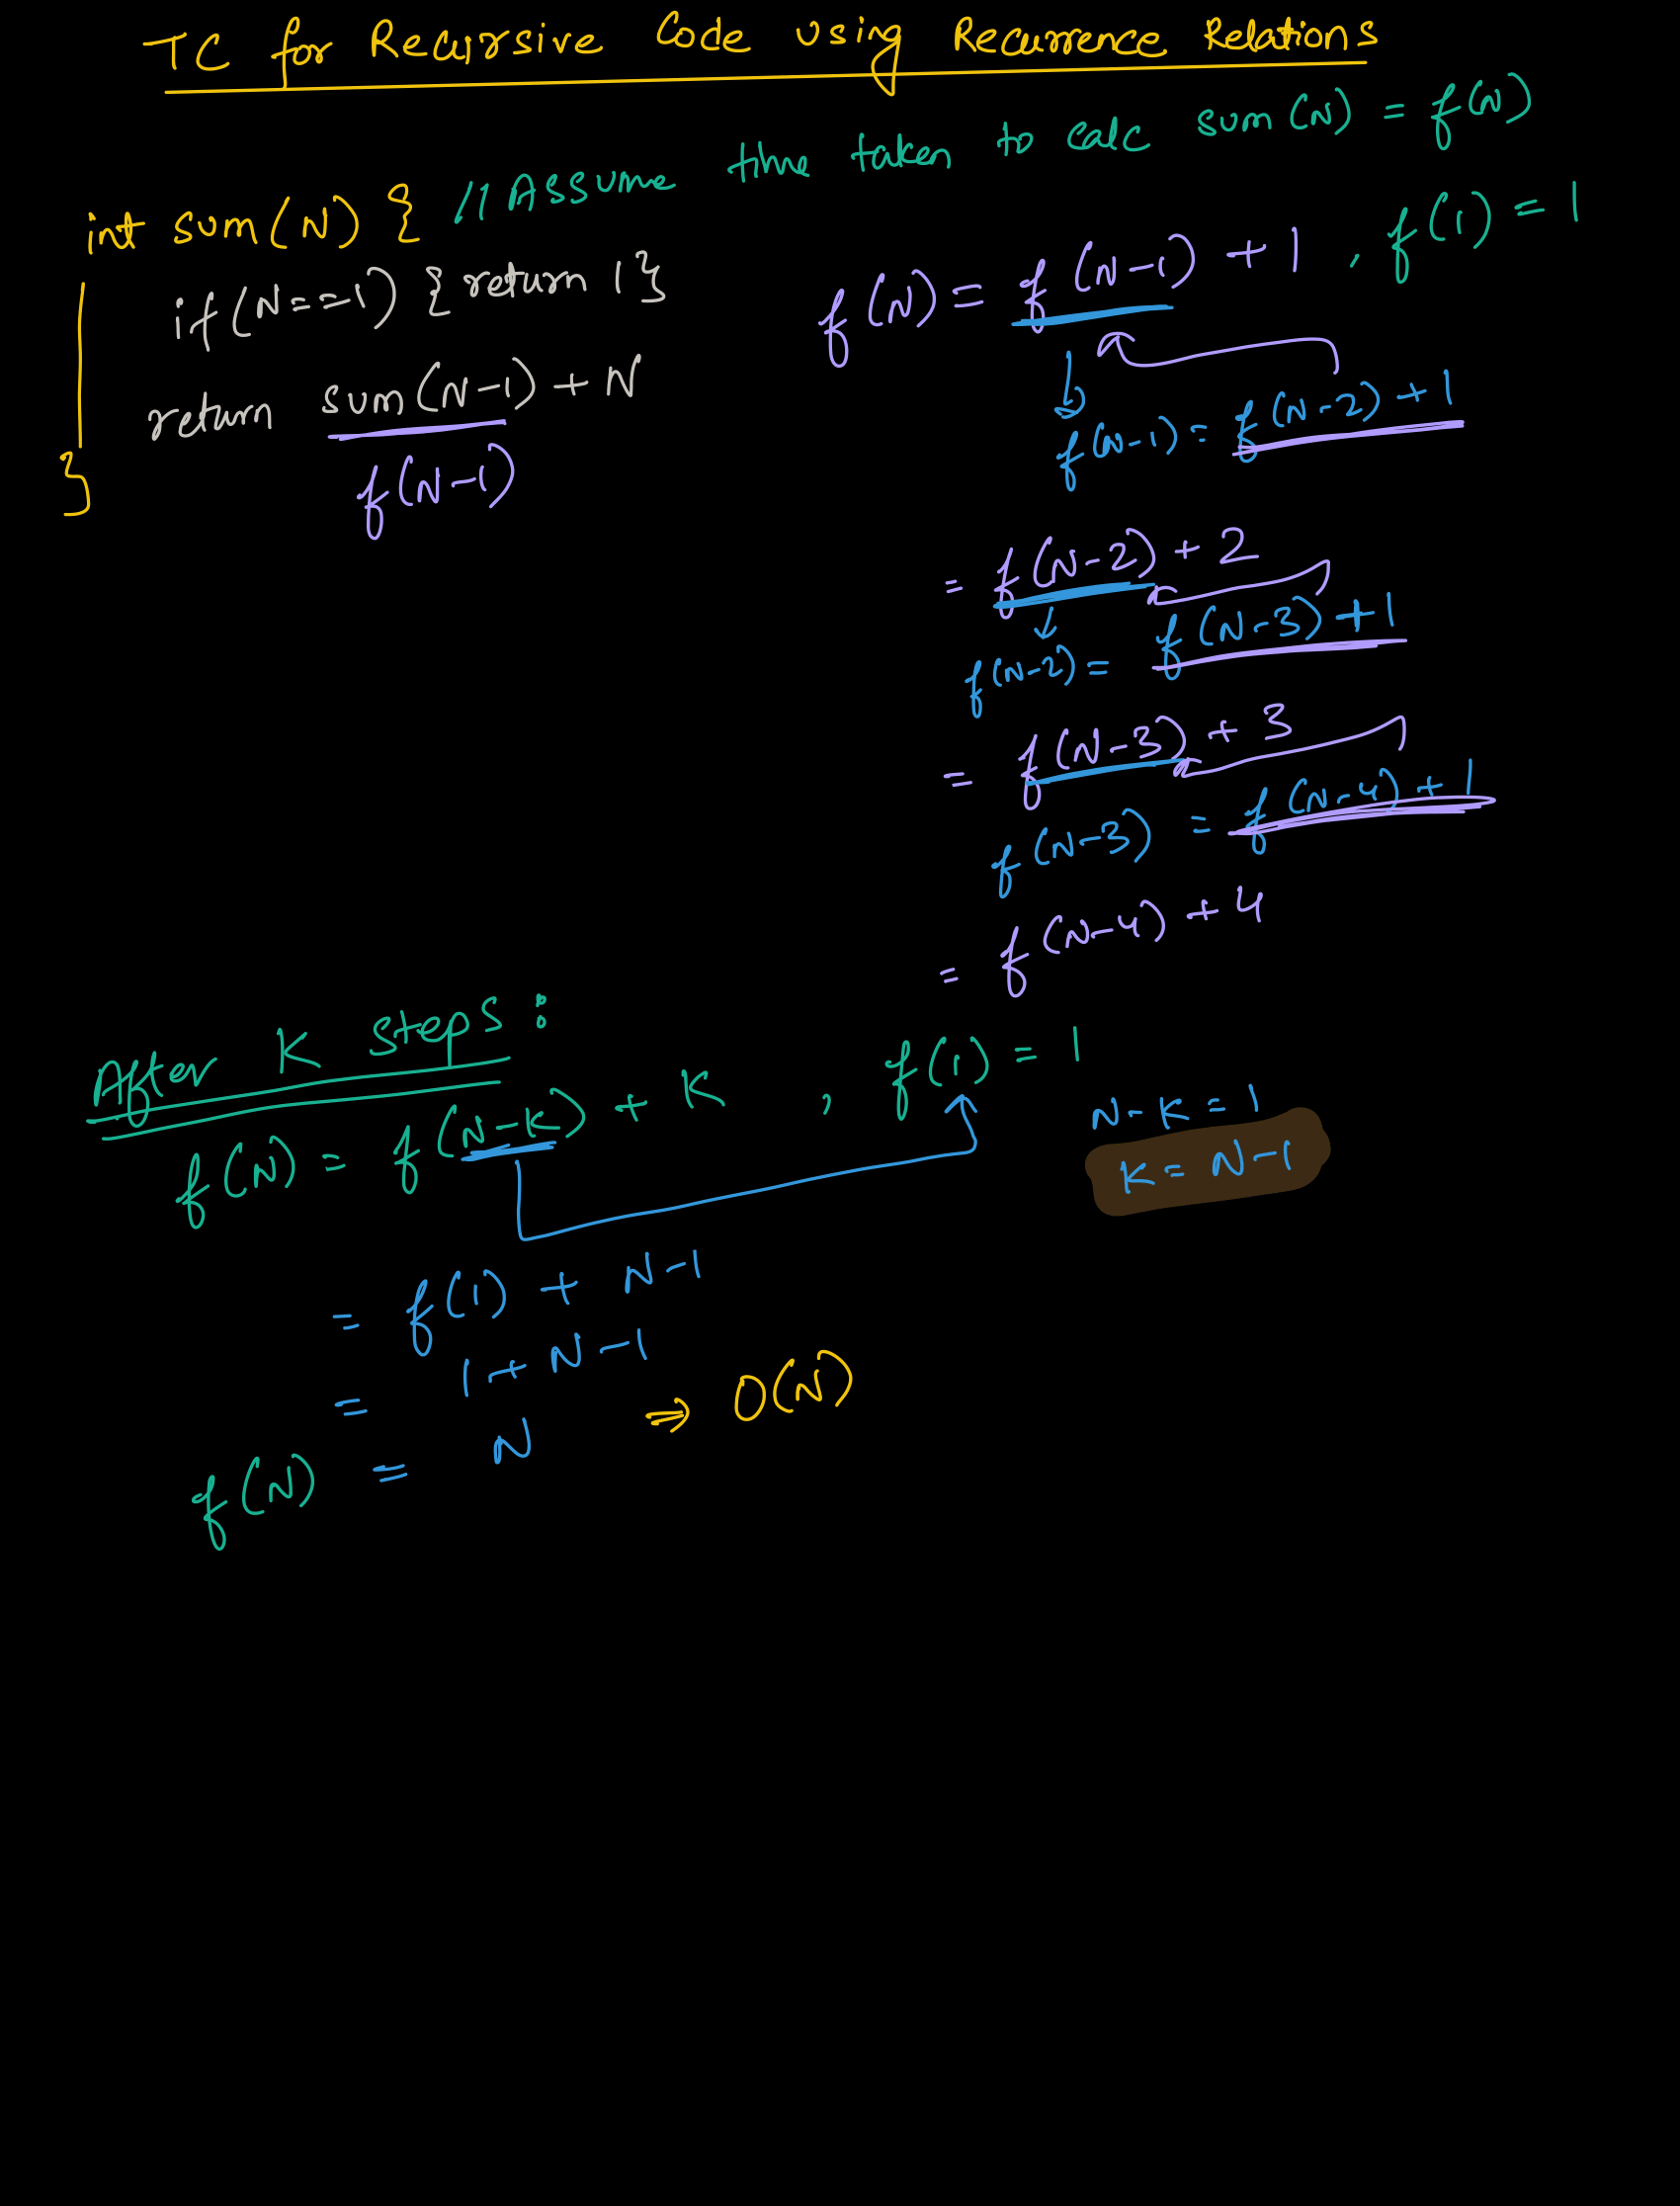 TC for Recursive Code using Recurrence Relations
int sum(N) { // Assume time taken to calc sum(N) = f(N)
if(N==1) { return 1}
return sum(N-1) + N
f(N-1)
}
f(N) = f(N-1) + 1 , f(1) = 1
f(N-1) = f(N-2) + 1
= f(N-2) + 2
f(N-2) = f(N-3) + 1
= f(N-3) + 3
f(N-3) = f(N-4) + 1
= f(N-4) + 4
After K steps:
f(N) = f(N-K) + K , f(1) = 1
N-K = 1
K = N-1
= f(1) + N-1
= 1 + N-1
f(N) = N ⇒ O(N)